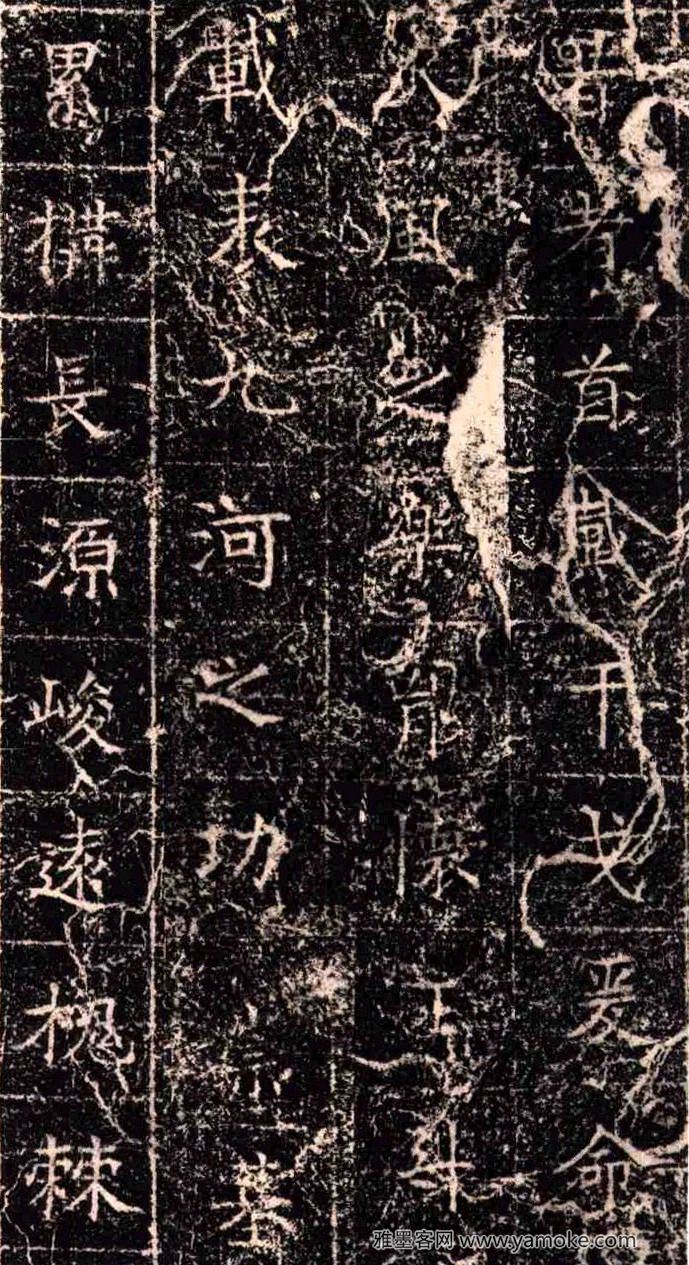 昔者首戴干戈爰命
風之懷玉
載表九河之功葉
累構長源峻遠槐棘
雅墨客网 www.yamoke.com